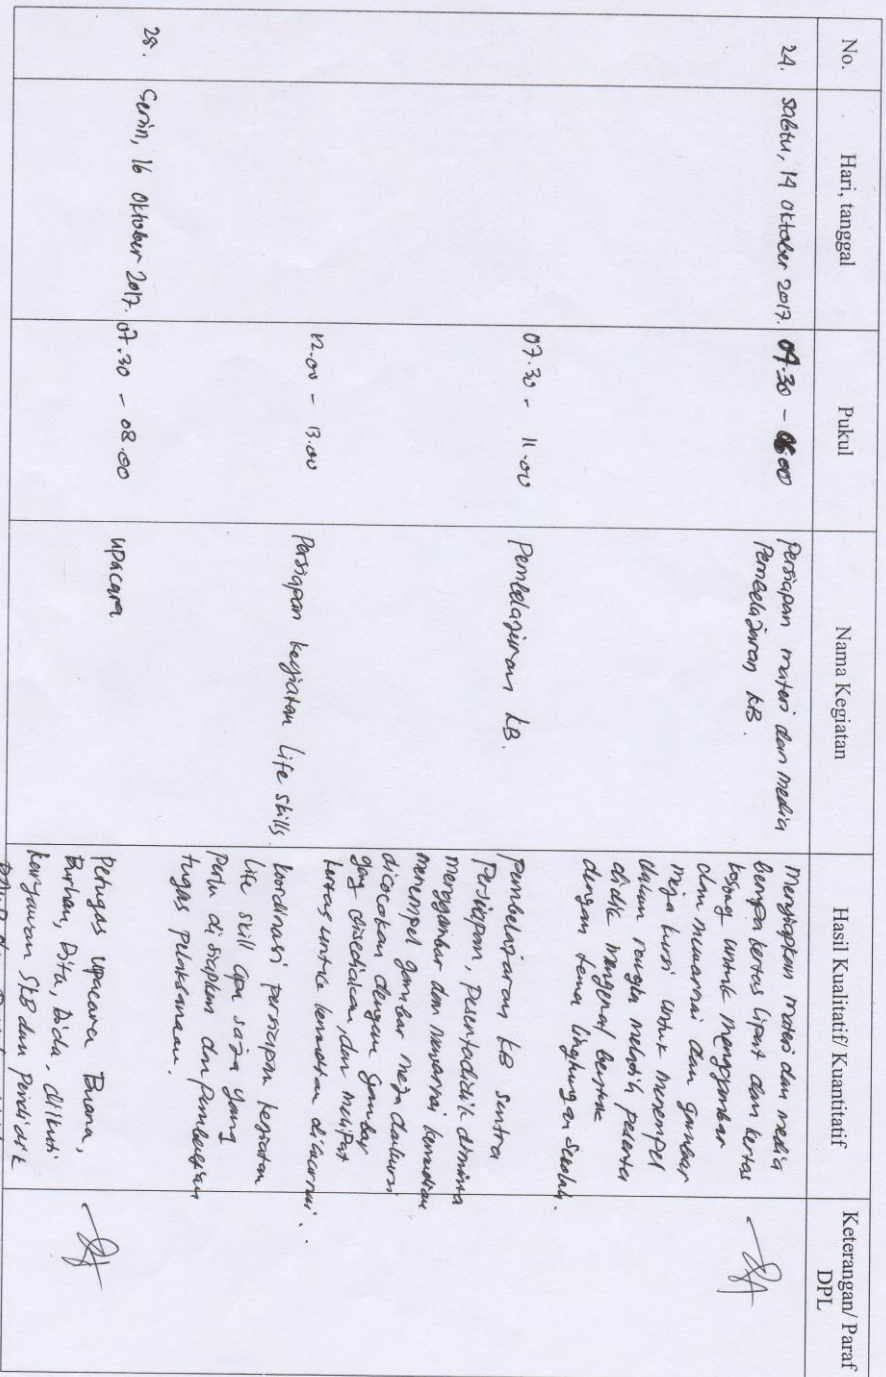 No.
Hari, tanggal
Pukul
Nama Kegiatan
Hasil Kualitatif/ Kuantitatif
Keterangan/ Paraf
DPL
24.
Sabtu, 14 Oktober 2017.
07.30 - 08.00
Persiapan materi dan media
Pembelajaran KB.
Menyiapkan materi dan media
berupa kertas lipat dan kertas
kosong untuk menggambar
dan mewarnai dan gambar
meja kursi untuk menempel
dalam rangka melatih peserta
didik mengenal bentuk
dengan tema lingkungan sekolah.
07.30 - 11.00
Pembelajaran KB.
Pembelajaran KB sentra
Persiapan, peserta didik diminta
menggambar dan mewarnai kemudian
menempel gambar meja dan kursi
dicocokan dengan gambar
yang disediakan, dan melipat
kertas untuk kemudian diwarnai.
12.00 - 13.00
Persiapan kegiatan Life skills
koordinasi persiapan kegiatan
life skill apa saja yang
perlu disiapkan dan pembagian
tugas pelaksanaan.
25.
Senin, 16 Oktober 2017.
07.30 - 08.00
upacara
Petugas upacara Buana,
Burhan, Dita, Dida, diikuti
karyawan SKB dan Pendidik